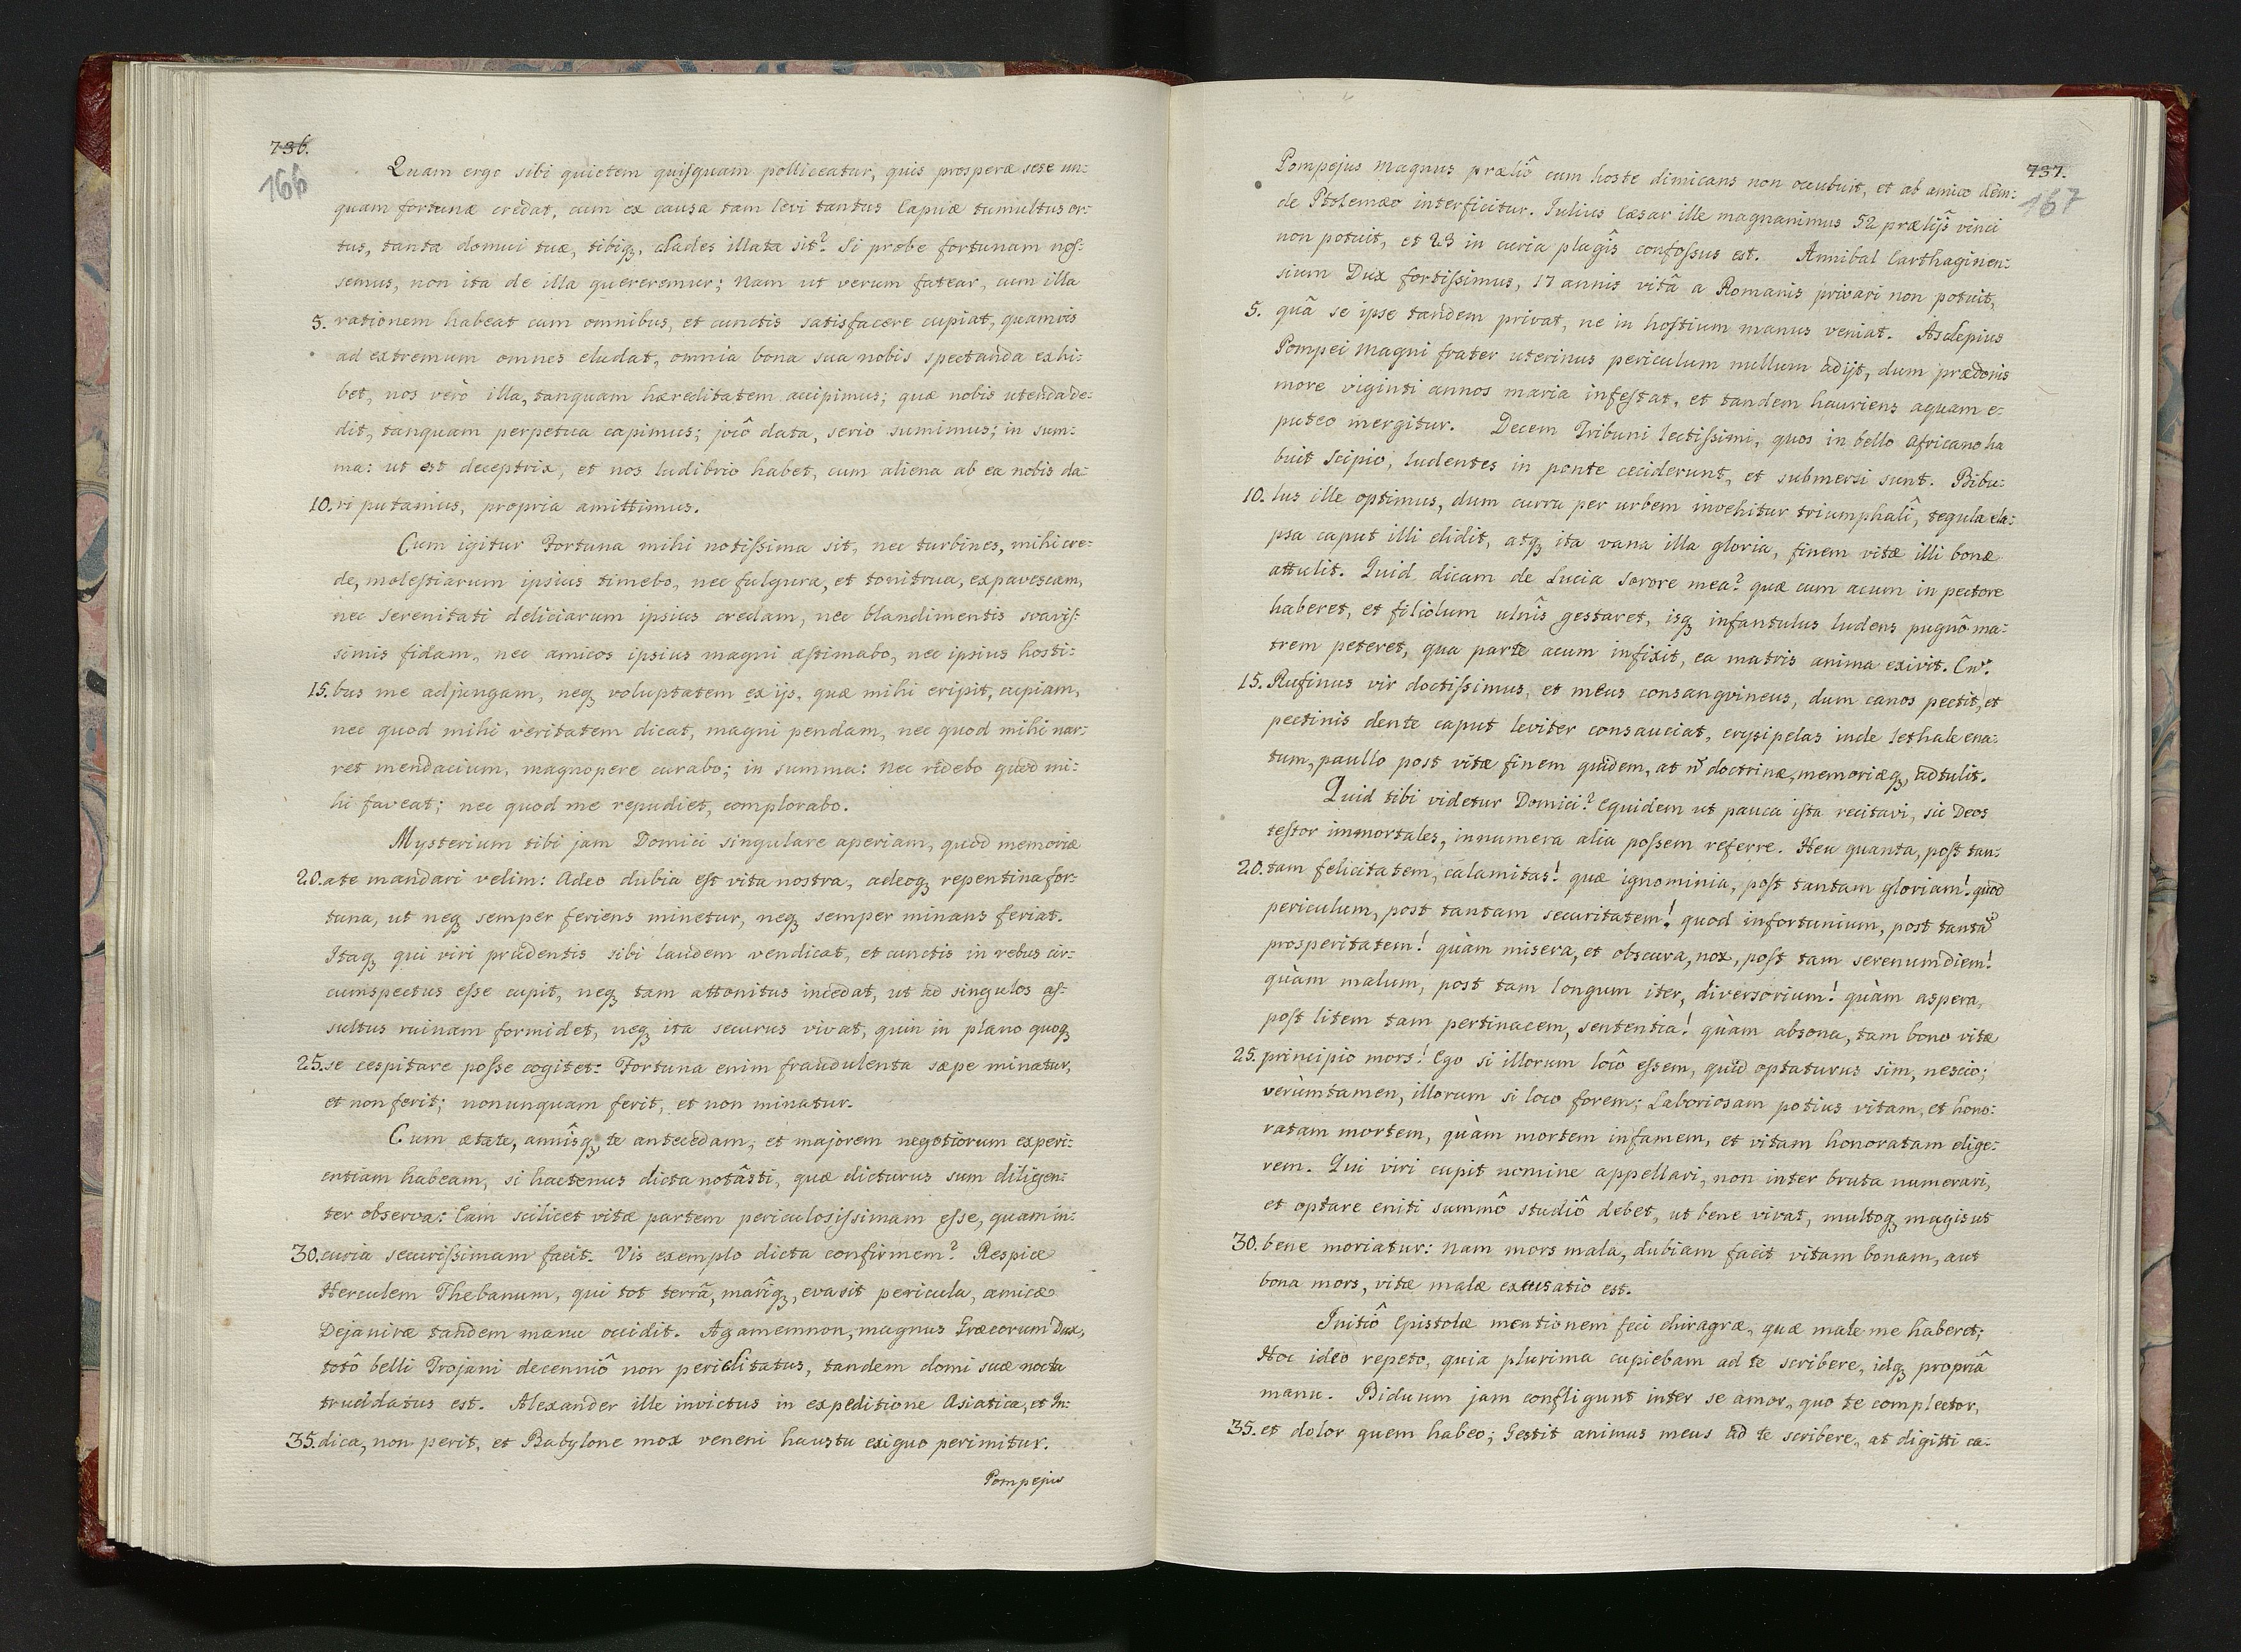 736.
166
Quam ergo sibi quietem quiſquam polliceatur, quis prosperæ sese un:
quam fortunæ credat, cum ex causa tam levi tantus Capuæ tumultus or:
tus, tanta domui tuæ, tibiq, clades illata sit? Si probe fortunam noſ:
semus, non ita de illa quereremur; Nam ut verum fatear, cum illa
5. rationem habeat cum omnibus, et cunctis satisfacere cupiat, quamvis
ad extremum omnes eludat, omnia bona sua nobis spectanda exhi:
bet, nos verò illa, tanquam hæreditatem accipimus; quæ nobis utenda de:
dit, tanquam perpetua capimus; jocô data, serio sumimus; in sum:
ma: ut est deceptrix, et nos ludibrio habet, cum aliena ab ea nobis da:
10. ri putamus, propria amittimus.
Cum igitur Fortuna mihi notiſsima sit, nec turbines, mihi cre:
de, moleſtiarum ipsius timebo, nec fulgura, et tonitrua, expavescam,
nec serenitati deliciarum ipsius credam, nec blandimentis soaviſ:
simis fidam, nec amicos ipsius magni æstimabo, nec ipsius hosti:
15. bus me adjungam, neq voluptatem ex ijs. quæ mihi eripit, cupiam,
nec quod mihi veritatem dicat, magni pendam, nec quod mihi nar:
ret mendacium, magnopere curabo; in summa: Nec ridebo quod mi:
hi faveat; nec quod me repudiet, complorabo.
Mysterium tibi jam Domici singulare aperiam, quod memoriæ
20. a te mandari velim: Adeo dubia eſt vita nostra, adeoq repentina for:
tuna, ut neq semper feriens minetur, neq semper minans feriat.
Itaq qui viri prudentis sibi laudem vendicat, et cunctis in rebus cir:
cumspectus eſse cupit, neq tam attonitus incedat, ut ad singulos aſ:
sultus ruinam formidet, neq ita securus vivat, quin in plano quoq
25. se cespitare poſse cogitet: Fortuna enim fraudulenta sæpe minatur,
et non ferit; nonunquam ferit, et non minatur.
Cum ætate, annîsq, te antecedam, et majorem negotiorum experi:
entiam habeam, si hactenus dicta notâsti, quæ dicturus sum diligen:
ter observa: Eam scilicet vitæ partem periculosiſsimam eſse, quam in:
30. curia securiſsimam facit. Vis exemplo dicta confirmem? Respice
Herculem Thebanum, qui tot terrâ, marîq, evasit pericula, amicæ
Dejaniræ tandem manu occidit. Agamemnon, magnus Græcorum Dux,
totô belli Trojani decenniô non periclitatus, tandem domi suæ noctu
trucidatus est. Alexander ille invictus in expeditione Asiatica, et In:
35. dica, non perit, et Babylone mox veneni haustu exiguo perimitur.
Pompejus
737.
167
Pompejus Magnus præliô cum hoste dimicans non occubuit, et ab amico dein:
de Ptolemæo interficitur. Iulius Cæsar ille magnanimus 52 prælijs vinci
non potuit, et 23 in curia plagîs confoſsus est. Annibal Carthaginen:
sium Dux fortiſsimus, 17 annis vitâ a Romanis privari non potuit,
5. quâ se ipse tandem privat, ne in hoſtium manus veniat. Asclepius
Pompei Magni frater uterinus periculum nullum adijt, dum prædonis
more viginti annos maria infeſtat, et tandem hauriens aquam e:
puteo mergitur. Decem Tribuni lectiſsimi, quos in bello Africano ha
buit Scipio, ludentes in ponte ceciderunt, et submersi sunt. Bibu:
10. lus ille optimus, dum curru per urbem invehitur triumphalî, tegula ela:
psa caput illi elidit, atq ita vana illa gloria, finem vitæ illi bonæ
attulit. Quid dicam de Lucia sorore mea? quæ cum acum in pectore
haberet, et filiolum ulnîs gestaret, isq infantulus ludens pugnô ma:
trem peteret, qua parte acum infixit, ea matris anima exivit. Cn.
15. Rufinus vir doctiſsimus, et meus consangvineus, dum canos pectit, et
pectinis dente caput leviter consauciat, erysipelas inde lethale ena:
tum, paullo post vitæ finem quidem, at n doctrinæ, memoriæq, adtulit.
Quid tibi videtur Domici? Equidem ut pauca iſta recitavi, sic Deos
teſtor immortales, innumera alia poſsem referre. Heu quanta, poſt tan:
20. tam felicitatem, calamitas! quæ ignominia, poſt tantam gloriam! quod
periculum, post tantam securitatem! quod infortunium, post tantã
prosperitatem! quàm misera, et obscura, nox, poſt tam serenum diem!
quàm malum, post tam longum iter, diversorium! quàm aspera,
poſt litem tam pertinacem, sententia! quàm absona, tam bono vitæ
25. principio mors! Ego si illorum locô eſsem, quid optaturus sim, nescio;
verùmtamen, illorum si loco forem; Laboriosam potius vitam, et hono:
ratam mortem, quàm mortem infamem, et vitam honoratam elige:
rem. Qui viri cupit nomine appellari, non inter bruta numerari,
et optare eniti summô studiô debet, ut bene vivat, multoq magis ut
30. bene moriatur: Nam mors mala, dubiam facit vitam bonam, aut
bona mors, vitæ malæ excusatio est.
Initiô Epistolæ mentionem feci chiragræ, quæ male me haberet;
Hoc ideo repeto, quia plurima cupiebam ad te scribere, idq propriâ
manu. Biduum jam confligunt inter se amor, quo te complector,
35. et dolor quem habeo; Gestit animus meus ad te scribere, at digitti ca: